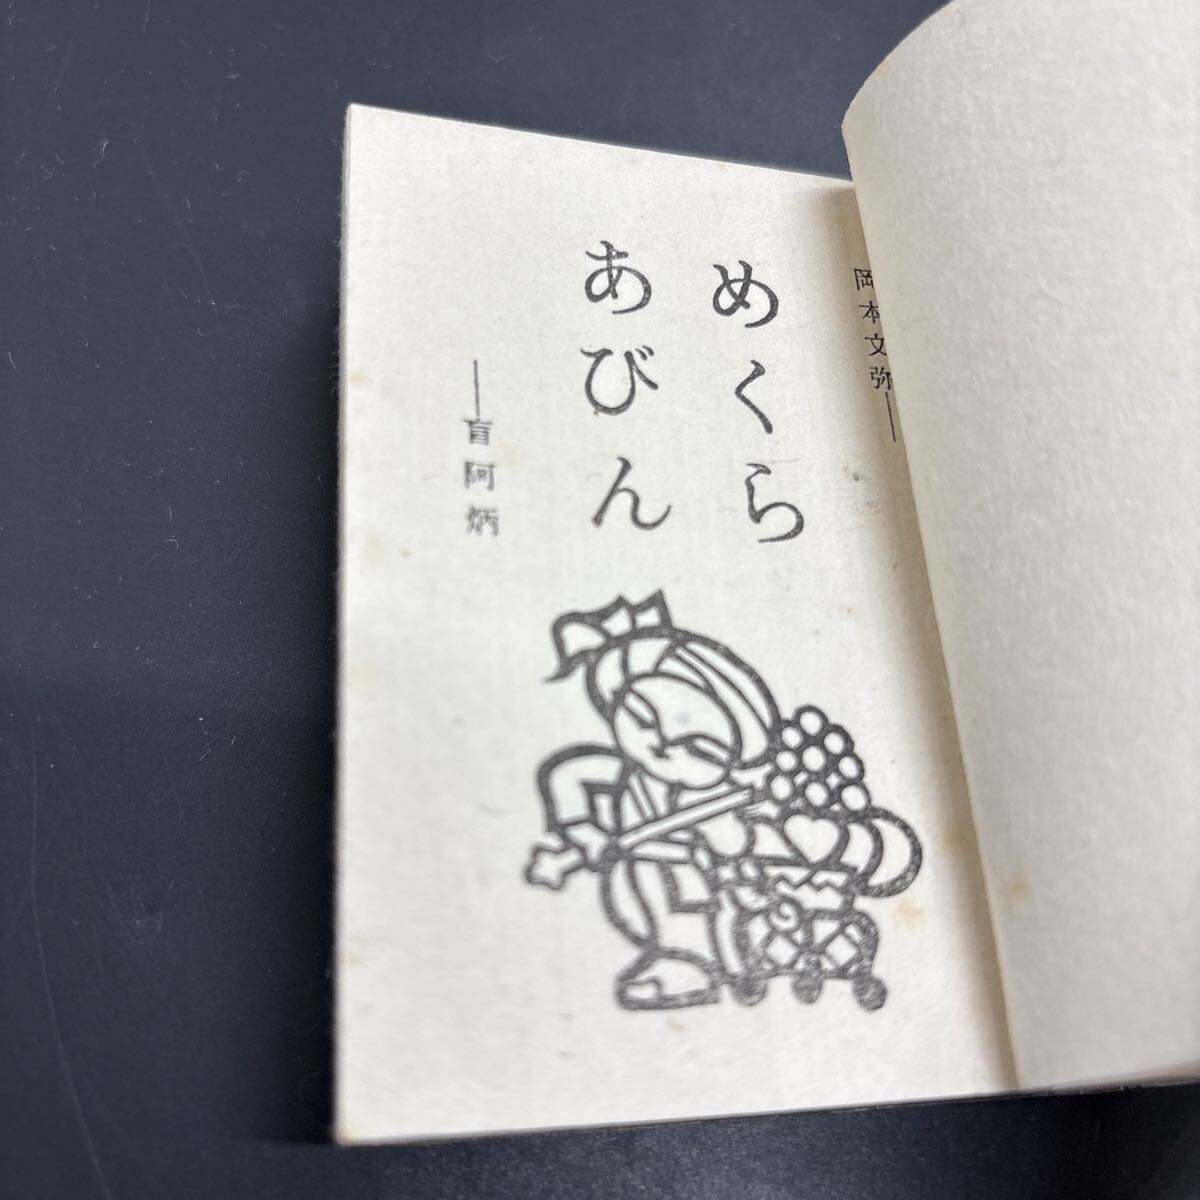 岡本文弥――
めくら
あびん
――盲阿炳